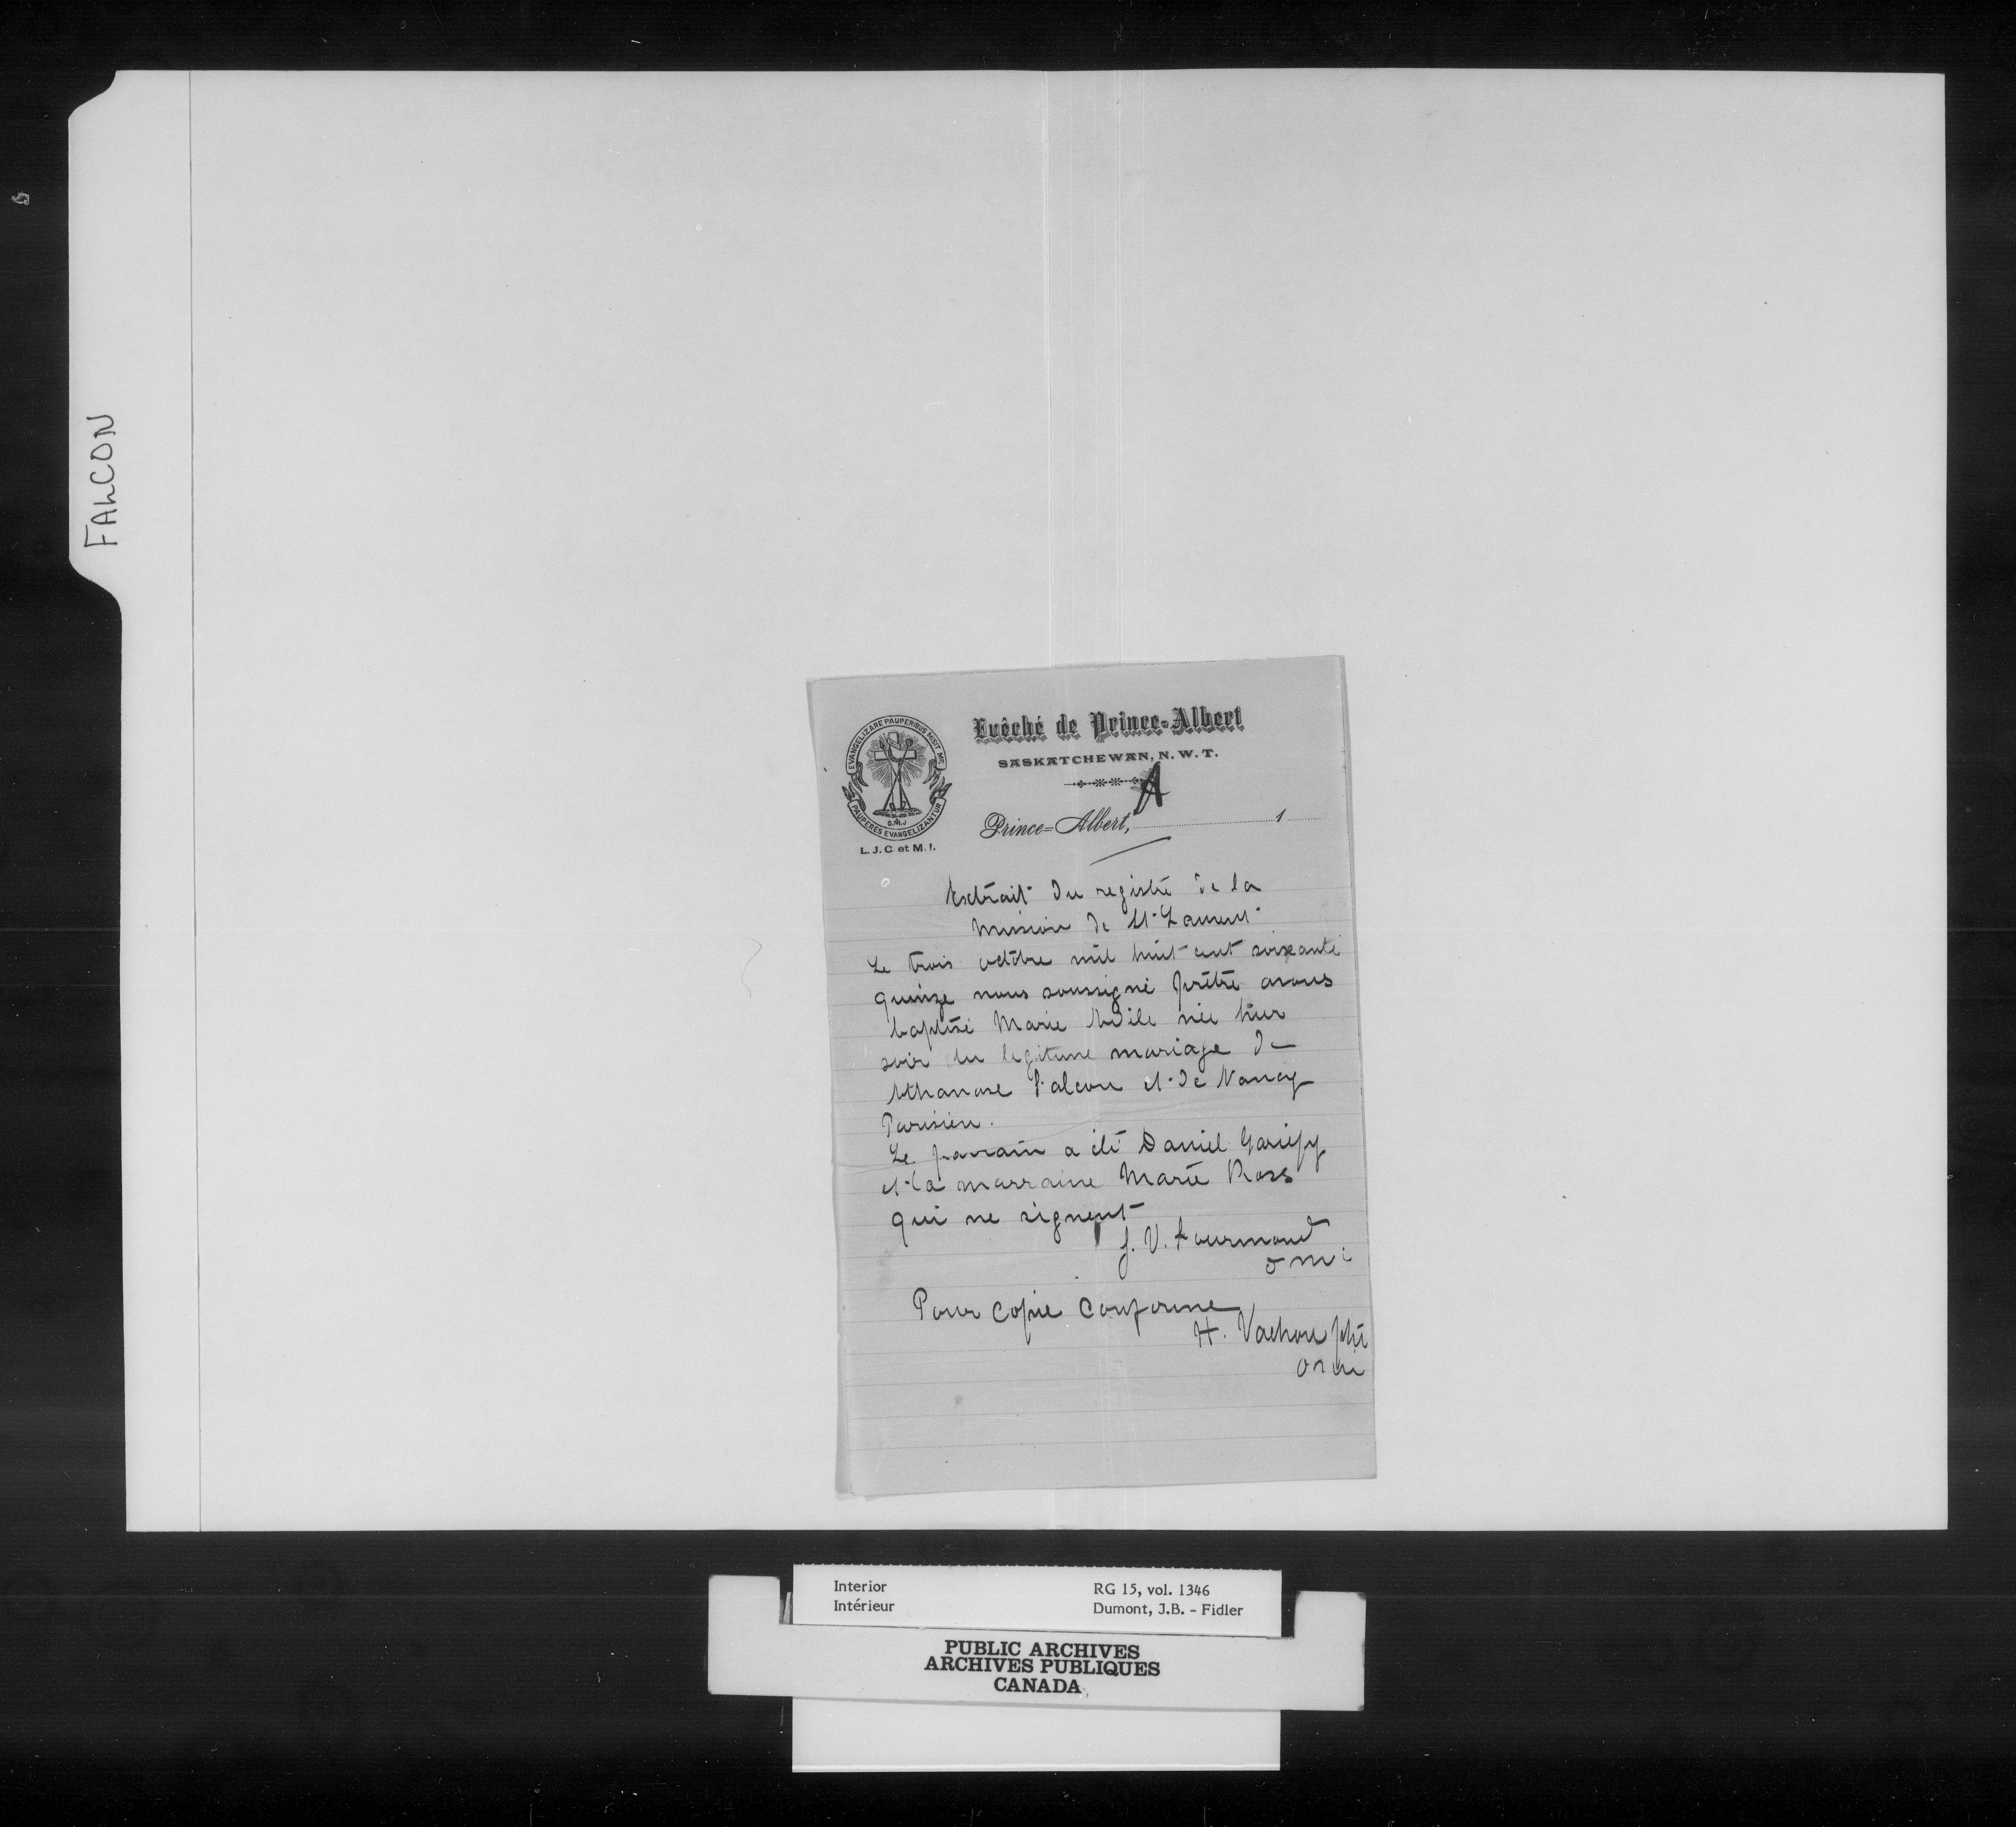 FALCON
Evêché de Prince=Albert
SASKATCHEWAN, N. W. T.
A
EVANGELIZARE PAUPERIBUS MISIT ME
PAUPERES EVANGELIZANTUR
O.M.I
L. J. C. et M. I.
Prince=Albert, 1
Extrait du registre de la
Mission de St. Laurent
Le trois octobre mil huit cent soixante
quinze nous soussigné prêtre avons
baptisé Marie Adile née hier
soir du legitime mariage de
Athanase Falcon et de Nancy
Parisien.
Le parrain a été Daniel Gariépy
et la marraine Marie Ross
qui ne signent
J. V. Fourmond
o m i
Pour copie conforme
H. Vachon ptre
o m i
Interior
Intérieur
RG 15, vol. 1346
Dumont, J.B. - Fidler
PUBLIC ARCHIVES
ARCHIVES PUBLIQUES
CANADA